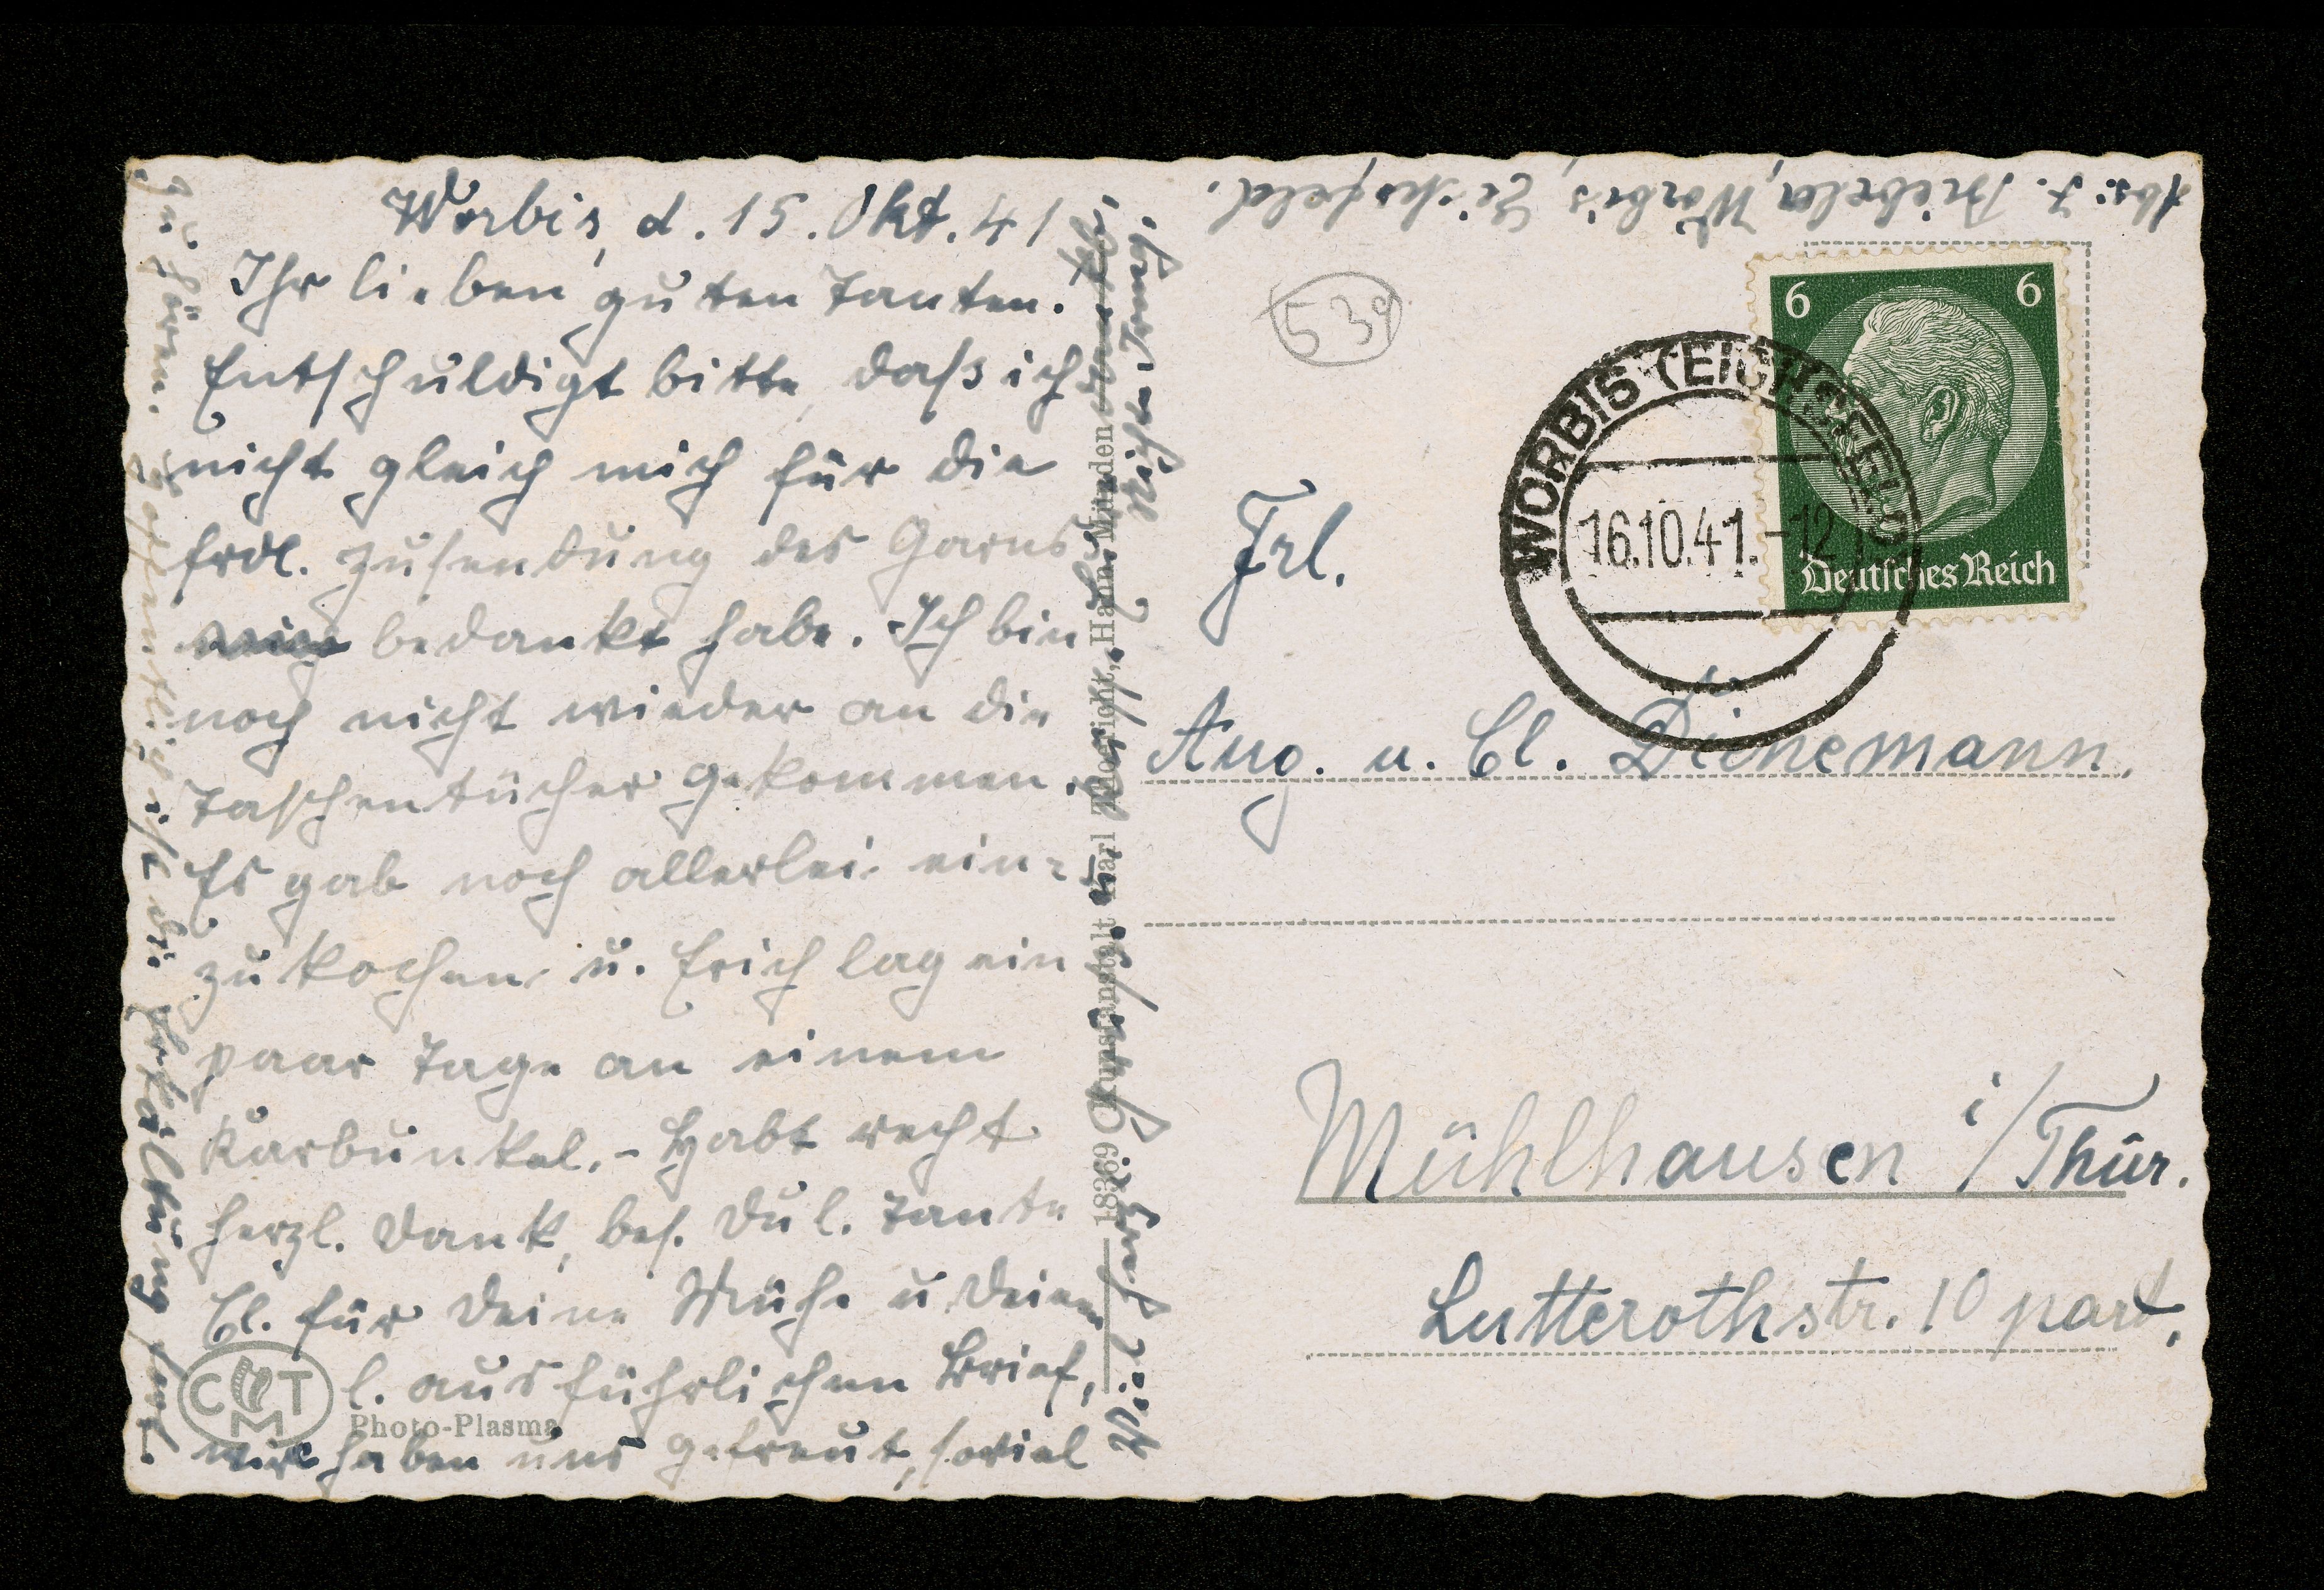 Worbis, d. 15. Okt. 41
Ihr lieben guten Tanten.
Entschuldigt bitte, daß ich
nicht gleich mich für die
frdl. Zusendung des Garns
bedankt habe. Ich bin
noch nicht wieder an die
Taschentücher gekommen.
Es gab noch allerlei ein-
zukochen u. Erich lag ein
paar Tage an einem
Karbunkel. - Habt recht
herzl. Dank, bes. Du l. Tante
Cl. für Deine Mühe u. Deinen
l. ausführlichen Brief,
wir haben uns gefreut, soviel
zu hören. Hoffentlich ist die Erkältung fort.
C M T
Photo-Plasma
18369 Kunstanstalt Carl Thoericht, Hann. Münden
Abs. F. Worbis, Eichsfeld.
539
WORBIS (EICHSFELD)
16.10.41.-12
6 6
Deutsches Reich
Frl.
Aug. u. Cl. Dienemann.
Mühlhausen i/Thür.
Lutterothstr. 10 part.